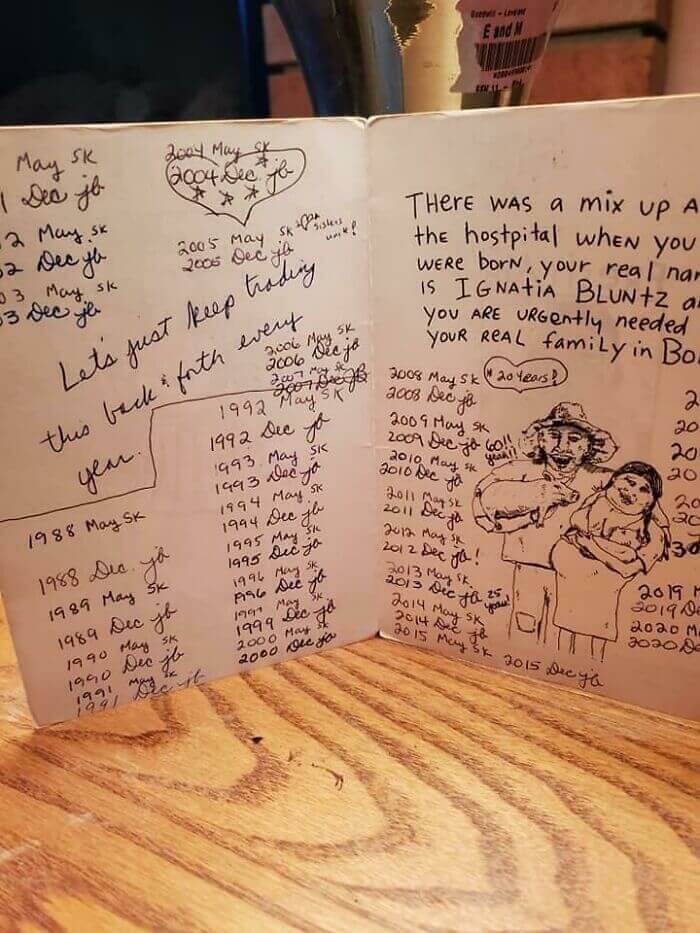 Goodwill - Loveland
E and M
May SK
1 Dec jb
2 May SK
02 Dec jb
03 May SK
3 Dec jb
2004 May SK
2004 Dec jb
2005 May SK
sisters
2005 Dec jb
Let's just keep trading
this back & forth every
year.
2006 May SK
2006 Dec jb
2007 May SK
2007 Dec jb
1988 May SK
1988 Dec. jb
1989 May SK
1989 Dec jb
1990 May SK
1990 Dec jb
1991 May SK
1991 Dec jb
1992 May SK
1992 Dec jb
1993 May SK
1993 Dec jb
1994 May SK
1994 Dec jb
1995 May SK
1995 Dec jb
1996 May SK
1996 Dec jb
1999 May SK
1999 Dec jb
2000 May SK
2000 Dec jb
THERE WAS a mix up A
the hostpital WHEN YOU
WERE born, your real nam
IS IGNATIA BLUNTZ a
YOU ARE URGENTLY needed
YOUR REAL family in Bo
2008 May SK
20 Years!
2008 Dec jb
2009 May SK
2009 Dec jb
60!!
2010 May SK
2010 Dec jb
2011 May SK
2011 Dec jb
2012 May SK
2012 Dec jb!
2013 May SK
2013 Dec jb
25 years!
2014 May SK
2014 Dec jb
2015 May SK
2015 Dec jb
2
20
20
20
20
20
30
2019 M
2019 De
2020 M
2020 De